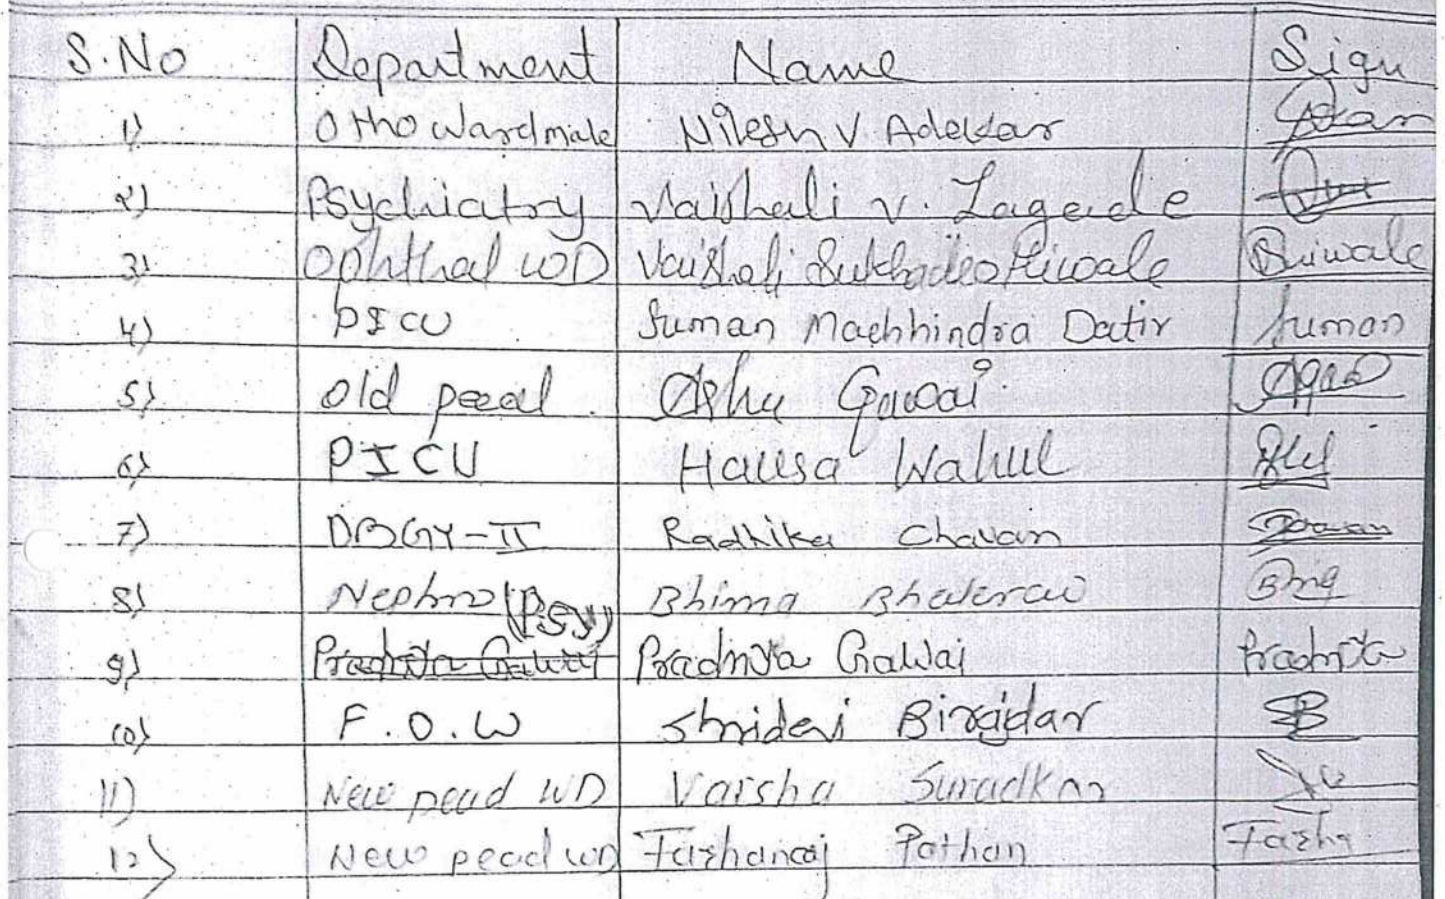 S.No Department Name Sign
1) Otho Ward male Nilesh V. Adekar
2) Psychiatry Vaishali V. Lagade
3) Ophthal WD Vaishali Sukhadeo Hiwale Hiwale
4) PICU Suman Machhindra Datir Suman
5) Old pead Ashu Gawai
6) PICU Hausa Wahul
7) OBGY-II Radhika Chavan
8) Nephro (Psy) Bhima Bhalerao
9) Pradnya Gawai Pradnya Gawai Pradnya
10) F.O.W Shridevi Birajdar
11) New pead WD Varsha Suradkar
12) New pead WD Farhanaj Pathan